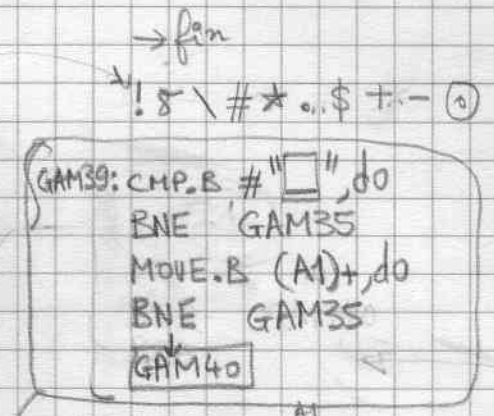 → fin
! 8 \ # * ..$ +.- ⓪
GAM39: CMP.B #"☐",d0
BNE GAM35
MOVE.B (A1)+,d0
BNE GAM35
GAM40